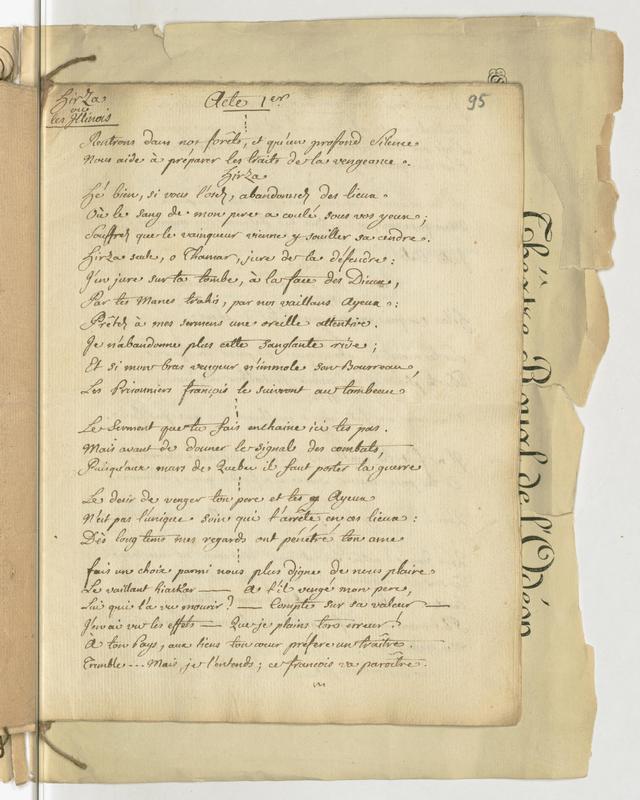 Hirza
ou
les Illinois
Acte 1er
95
Rentrons dans nos forêts, et qu'un profond Silence
Nous aide à préparer les traits de la vengeance.
Hirza
Hé bien, si vous l'osez, abandonnez des lieux
Où le sang de mon pere a coulé sous vos yeux;
Souffrez que le vainqueur vienne y souiller sa cendre.
Hirza seule, o Thamar, jure de la défendre:
J'en jure sur ta tombe, à la face des Dieux,
Par tes Manes trahis, par nos vaillans Ayeux:
Prêtez à mes sermens une oreille attentive.
Je n'abandonne plus cette sanglante rive;
Et si mon bras vengeur n'immole son Bourreau,
Les Prisonniers françois le suivront au tombeau
Le Serment que tu fais enchaine ici tes pas.
Mais avant de donner le signal des combats,
Jusqu'aux murs de Quebec il faut porter la guerre
Le desir de venger ton pere et tes Ayeux
N'est pas l'unique soin qui t'arrête en ces lieux:
Dès long tems mes regards ont pénétré ton ame
fais un choix parmi nous plus digne de nous plaire
Le vaillant hiaskar — A t'il vengé mon pere,
Lui qui l'a vu mourir? — Compte sur sa valeur —
J'en ai vu les effets — Que je plains ton erreur!
À ton Pays, aux tiens ton cœur préfere un traître.
Tremble ... Mais, je l'entends; ce françois va paroître.
Théâtre Royal de l'Odéon